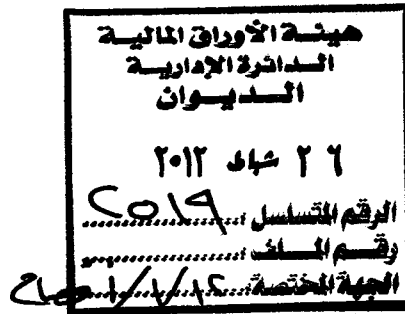 هيئة الأوراق المالية
الدائرة الإدارية
الديوان
٢٦ شباط ٢٠١٢
الرقم المتسلسل: ٢٥١٩
رقم الملف:
الجهة المختصة: